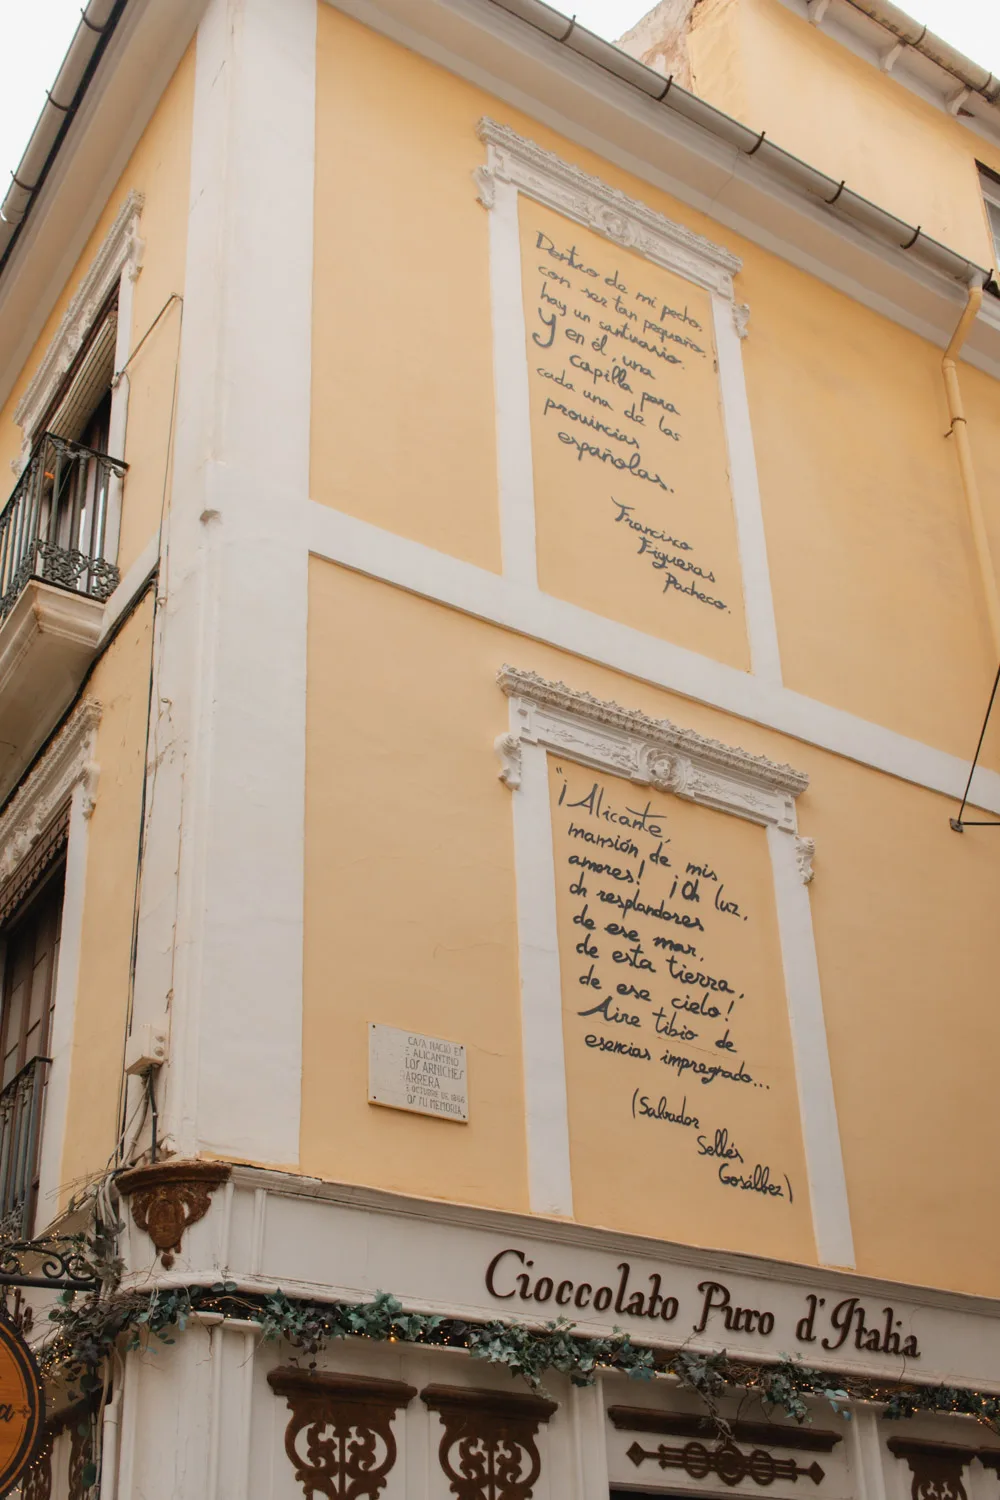 Dentro de mi pecho,
con ser tan pequeño,
hay un santuario.
Y en él, una
capilla para
cada una de las
provincias
españolas.
Francisco
Figueras
Pacheco.
"¡Alicante,
mansión de mis
amores! ¡Oh luz,
oh resplandores
de ese mar,
de esta tierra,
de ese cielo!
Aire tibio de
esencias impregnado...
(Salvador
Sellés
Gosálbez)
CASA NACIÓ EL
E ALICANTINO
LOS ARNICHES
BARRERA
E OCTUBRE DE 1866
A SU MEMORIA
Cioccolato Puro d'Italia